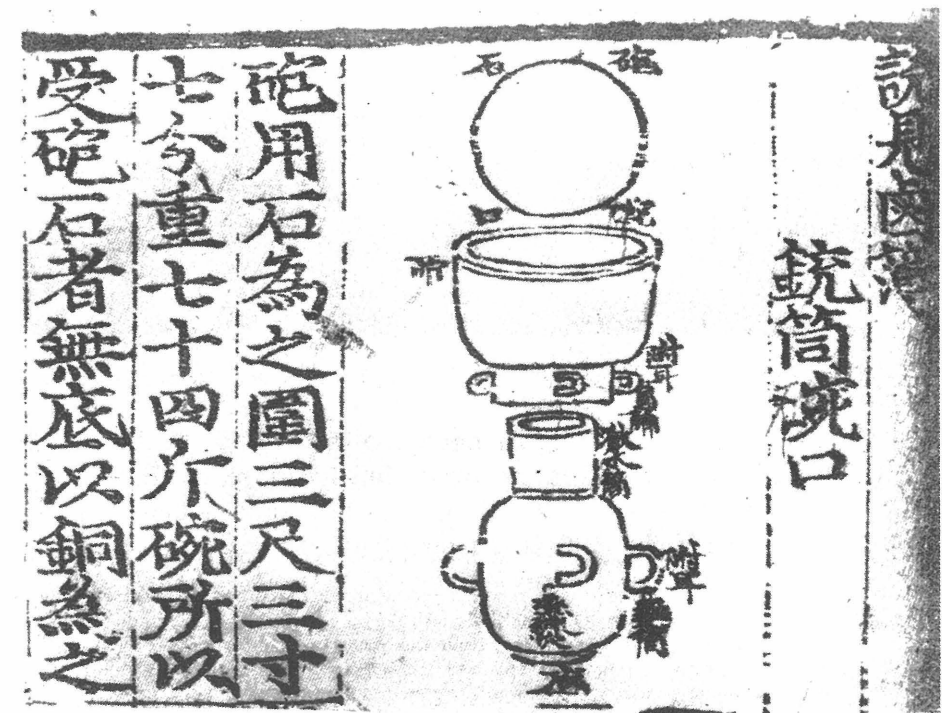 詳見鹵簿
銃筒碗口
砲石
碗口
附耳
附耳
砲用石為之圍三尺三寸
七分重七十四斤碗所以
受砲石者無底以銅為之